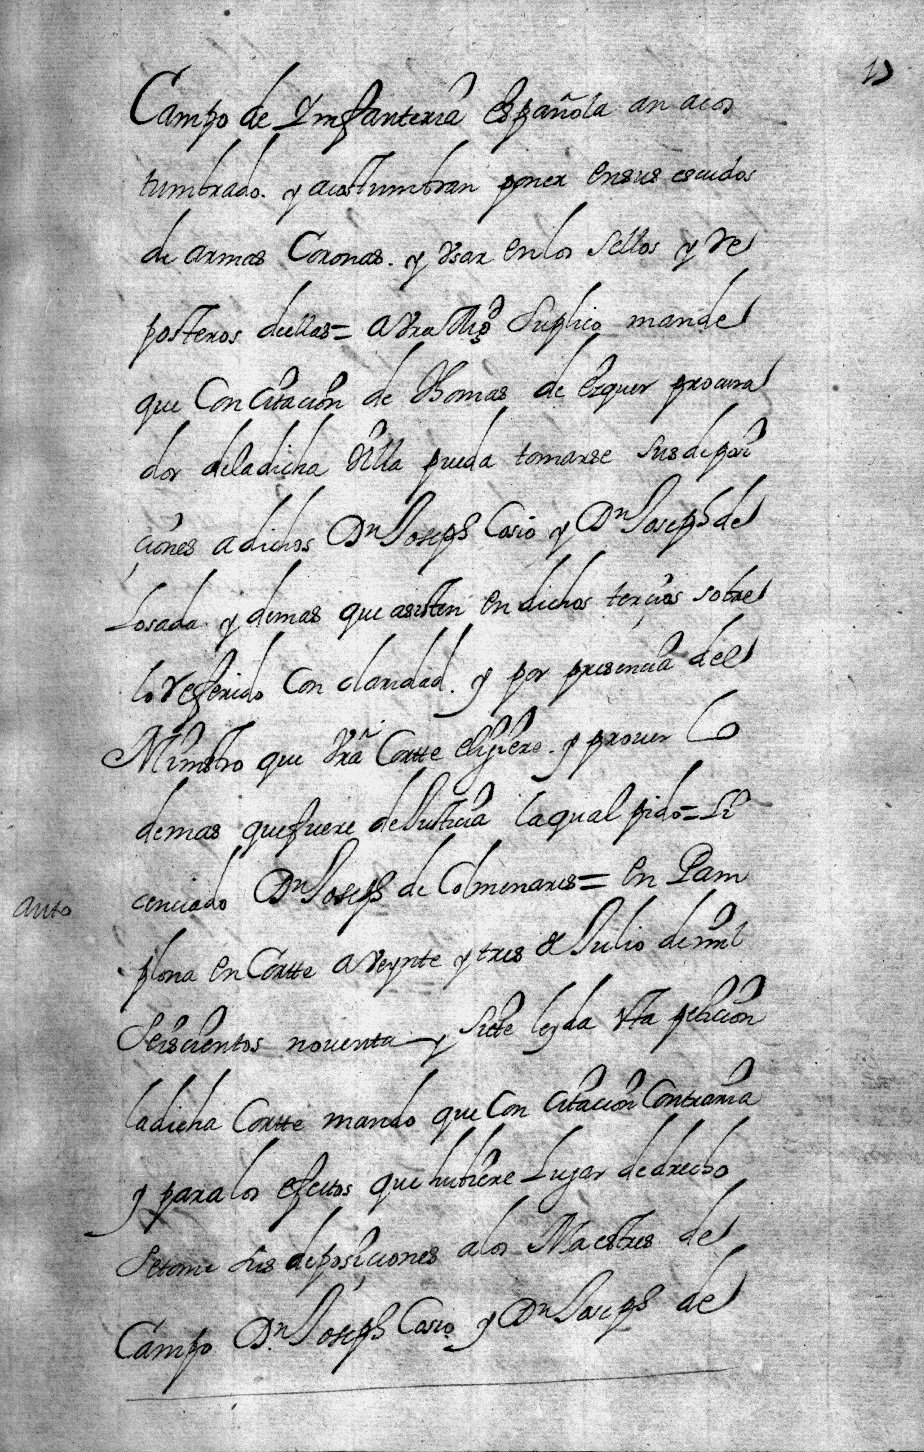 Campo de Ynfanteria española an acos
tumbrado. y acostumbran poner ensus escudos
de armas Coronas. y Vsar enlos sellos y Re
posteros dellas= a Vra Mgd Suplico mande
que Con Citacion de Thomas de ezquer procura
dor deladicha Villa pueda tomarse sus deposi
çiones a dichos Dn Joseph Casio y Dn Joseph de
Losada y demas que asisten en dichos terçios sobre
lo Referido con claridad. y por presencia del
Ministro que Vra Cortte eligiere. y prouer lo
demas que fuere de Justicia laqual pido= Li
cenciado Dn Joseph de Colmenares= en Pam
auto
plona en Cortte a Veynte y tres de Julio de mil
Seiscientos nouenta y Siete leyda Vta peticion
ladicha Cortte mando que Con Citacion Contraria
y para los efectos que hubiere Lugar de drecho
Setome sus deposiçiones alos Maestres de
Campo Dn Joseph Casio y Dn Joseph de